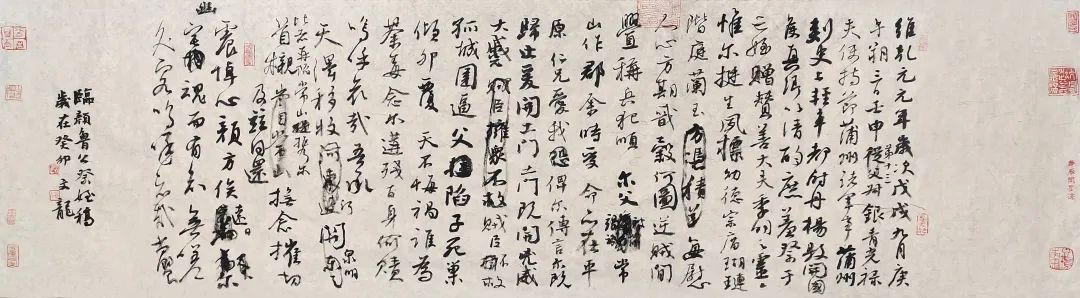 維乾元元年歲次戊戌九月庚
午朔三日壬申第十三從父叔銀青光祿
夫使持節蒲州諸軍事蒲州
刺史上輕車都尉丹楊縣開國
侯真卿以清酌庶羞祭于
亡姪贈贊善大夫季明之靈曰
惟尔挺生夙標幼德宗廟瑚璉
階庭蘭玉方憑積善每慰
人心方期戩穀何圖逆賊閒
釁稱兵犯順尔父常
山作郡余時受命亦在平
原仁兄愛我恐俾尔傳言尔既
歸止爰開土門土門既開凶威
大蹙賊臣擁眾不救賊臣不救
孤城圍逼父陷子死巢
傾卵覆天不悔禍誰為
荼毒念尔遘殘百身何贖
嗚乎哀哉吾承
天澤移牧河東近河關泉明
比者再陷常山攜尔
首櫬及茲同還
撫念摧切
震悼心顏方俟遠日
幽宅魂而有知無嗟
久客嗚呼哀哉尚饗
臨顏魯公祭姪稿
歲在癸卯文龍